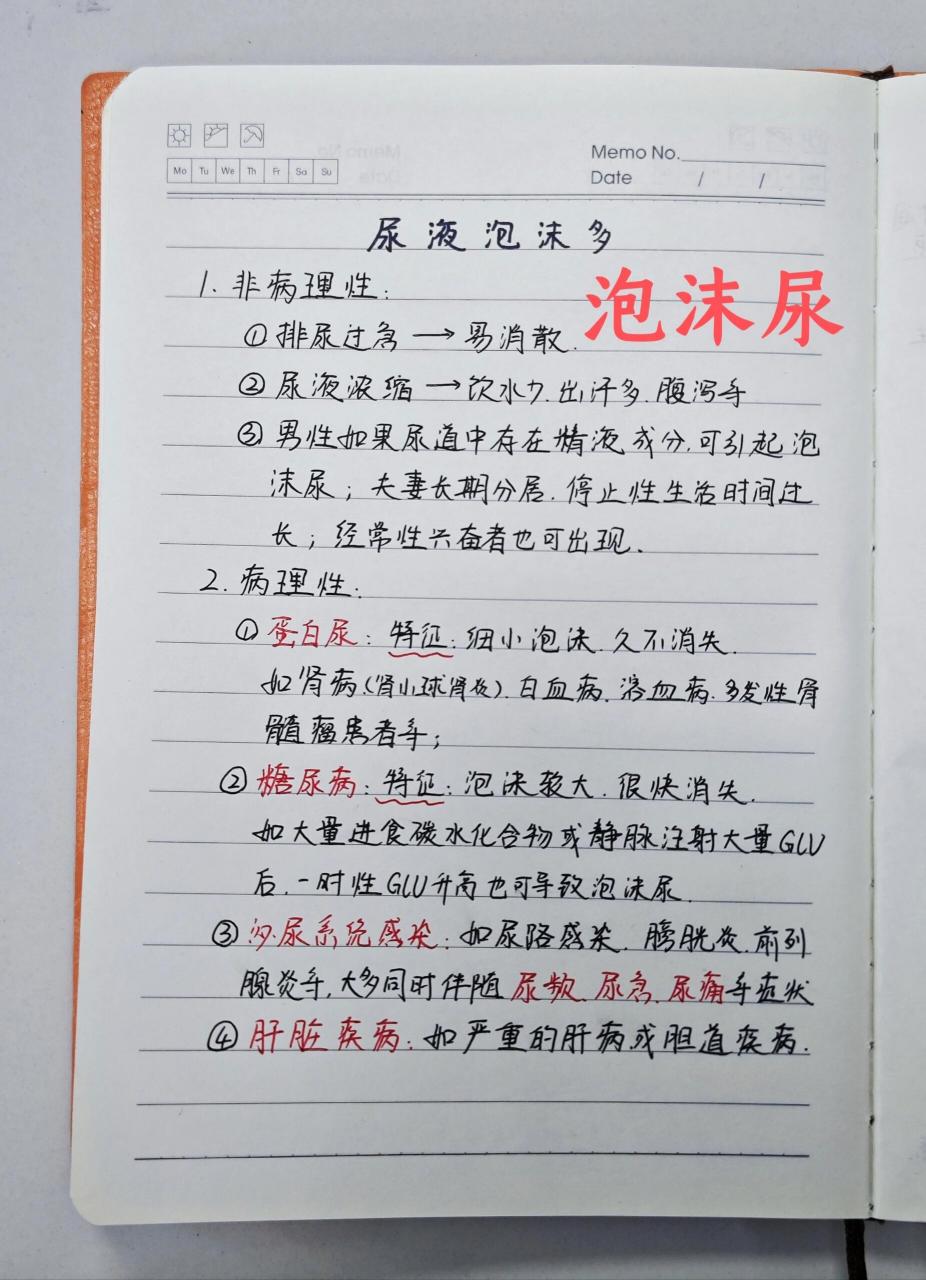 Memo No.
Mo Tu We Th Fr Sa Su
Date / /
尿液泡沫多
泡沫尿
1. 非病理性:
① 排尿过急 → 易消散.
② 尿液浓缩 → 饮水少、出汗多、腹泻等
③ 男性如果尿道中存在精液成分,可引起泡
沫尿; 夫妻长期分居、停止性生活时间过
长; 经常性兴奋者也可出现.
2. 病理性:
① 蛋白尿: 特征: 细小泡沫、久不消失.
如肾病(肾小球肾炎)、白血病、溶血病、多发性骨
髓瘤患者等;
② 糖尿病: 特征: 泡沫较大、很快消失.
如大量进食碳水化合物或静脉注射大量GLU
后、一时性GLU升高也可导致泡沫尿.
③ 泌尿系统感染: 如尿路感染、膀胱炎、前列
腺炎等,大多同时伴随尿频、尿急、尿痛等症状
④ 肝脏疾病: 如严重的肝病或胆道疾病.